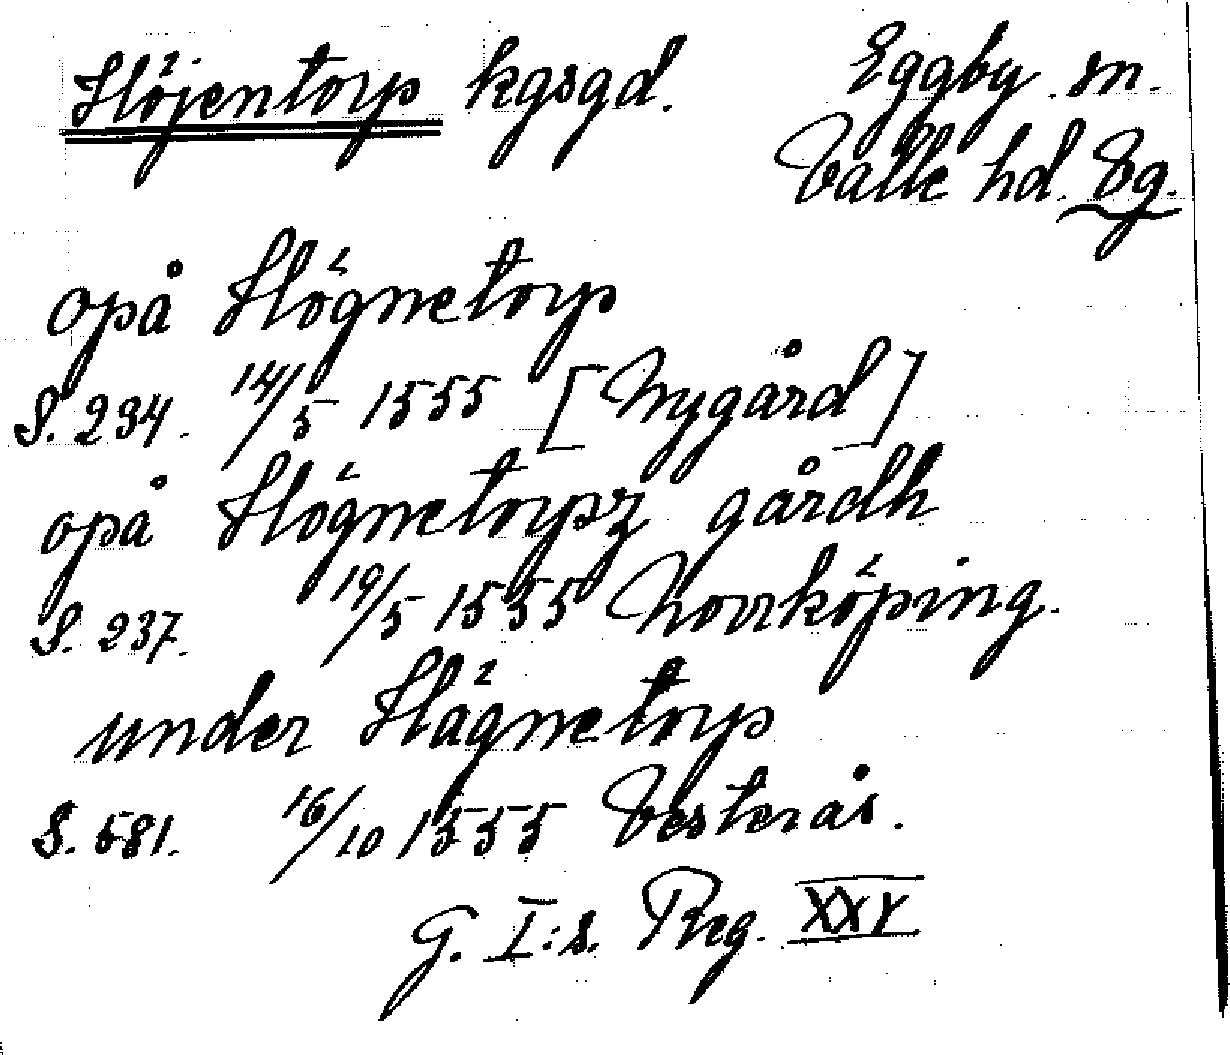 Höjentorp kgsgd. Eggby sn.
Valle hd. Vg.
opå Högnetorp
S. 234. 14/5 1555 [Nygård]
opå Högnetorpz gårdh
S. 237. 19/5 1555 Norrköping.
under Hägnetorp
S. 581. 16/10 1555 Vesterås.
G. I:s. Reg. XXV